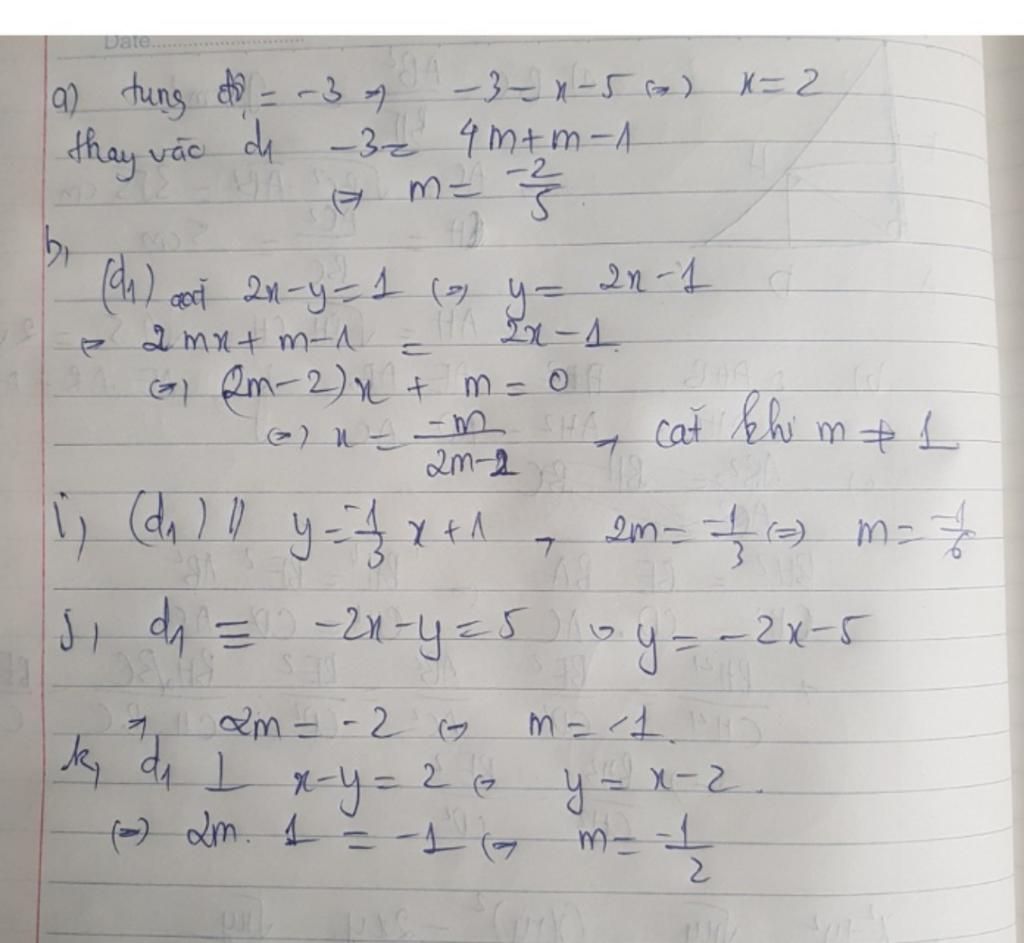 Date
a) tung độ = -3 => -3 = x - 5 <=> x = 2
thay vào d1 -3 = 4m + m - 1
<=> m = -2/5
b,
(d1) cắt 2x - y = 1 <=> y = 2x - 1
<=> 2mx + m - 1 = 2x - 1.
<=> (2m - 2)x + m = 0
<=> x = -m/(2m - 2) , cắt khi m ≠ 1
i, (d1) // y = -1/3 x + 1 , 2m = -1/3 <=> m = -1/6
j, d1 ≡ -2x - y = 5 <=> y = -2x - 5
=> 2m = -2 <=> m = -1.
k, d1 ⊥ x - y = 2 <=> y = x - 2.
<=> 2m. 1 = -1 <=> m = -1/2